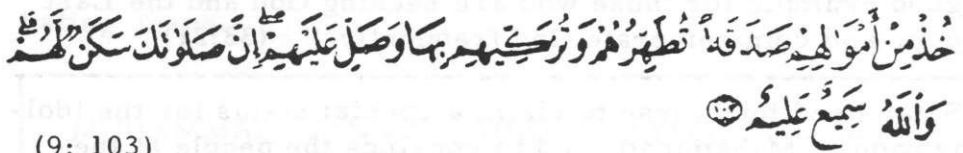 خُذْ مِنْ أَمْوَٰلِهِمْ صَدَقَةً تُطَهِّرُهُمْ وَتُزَكِّيهِم بِهَا وَصَلِّ عَلَيْهِمْ ۖ إِنَّ صَلَوٰتَكَ سَكَنٌ لَّهُمْ ۗ
وَٱللَّهُ سَمِيعٌ عَلِيمٌ ﴿١٠٣﴾
(9:103)